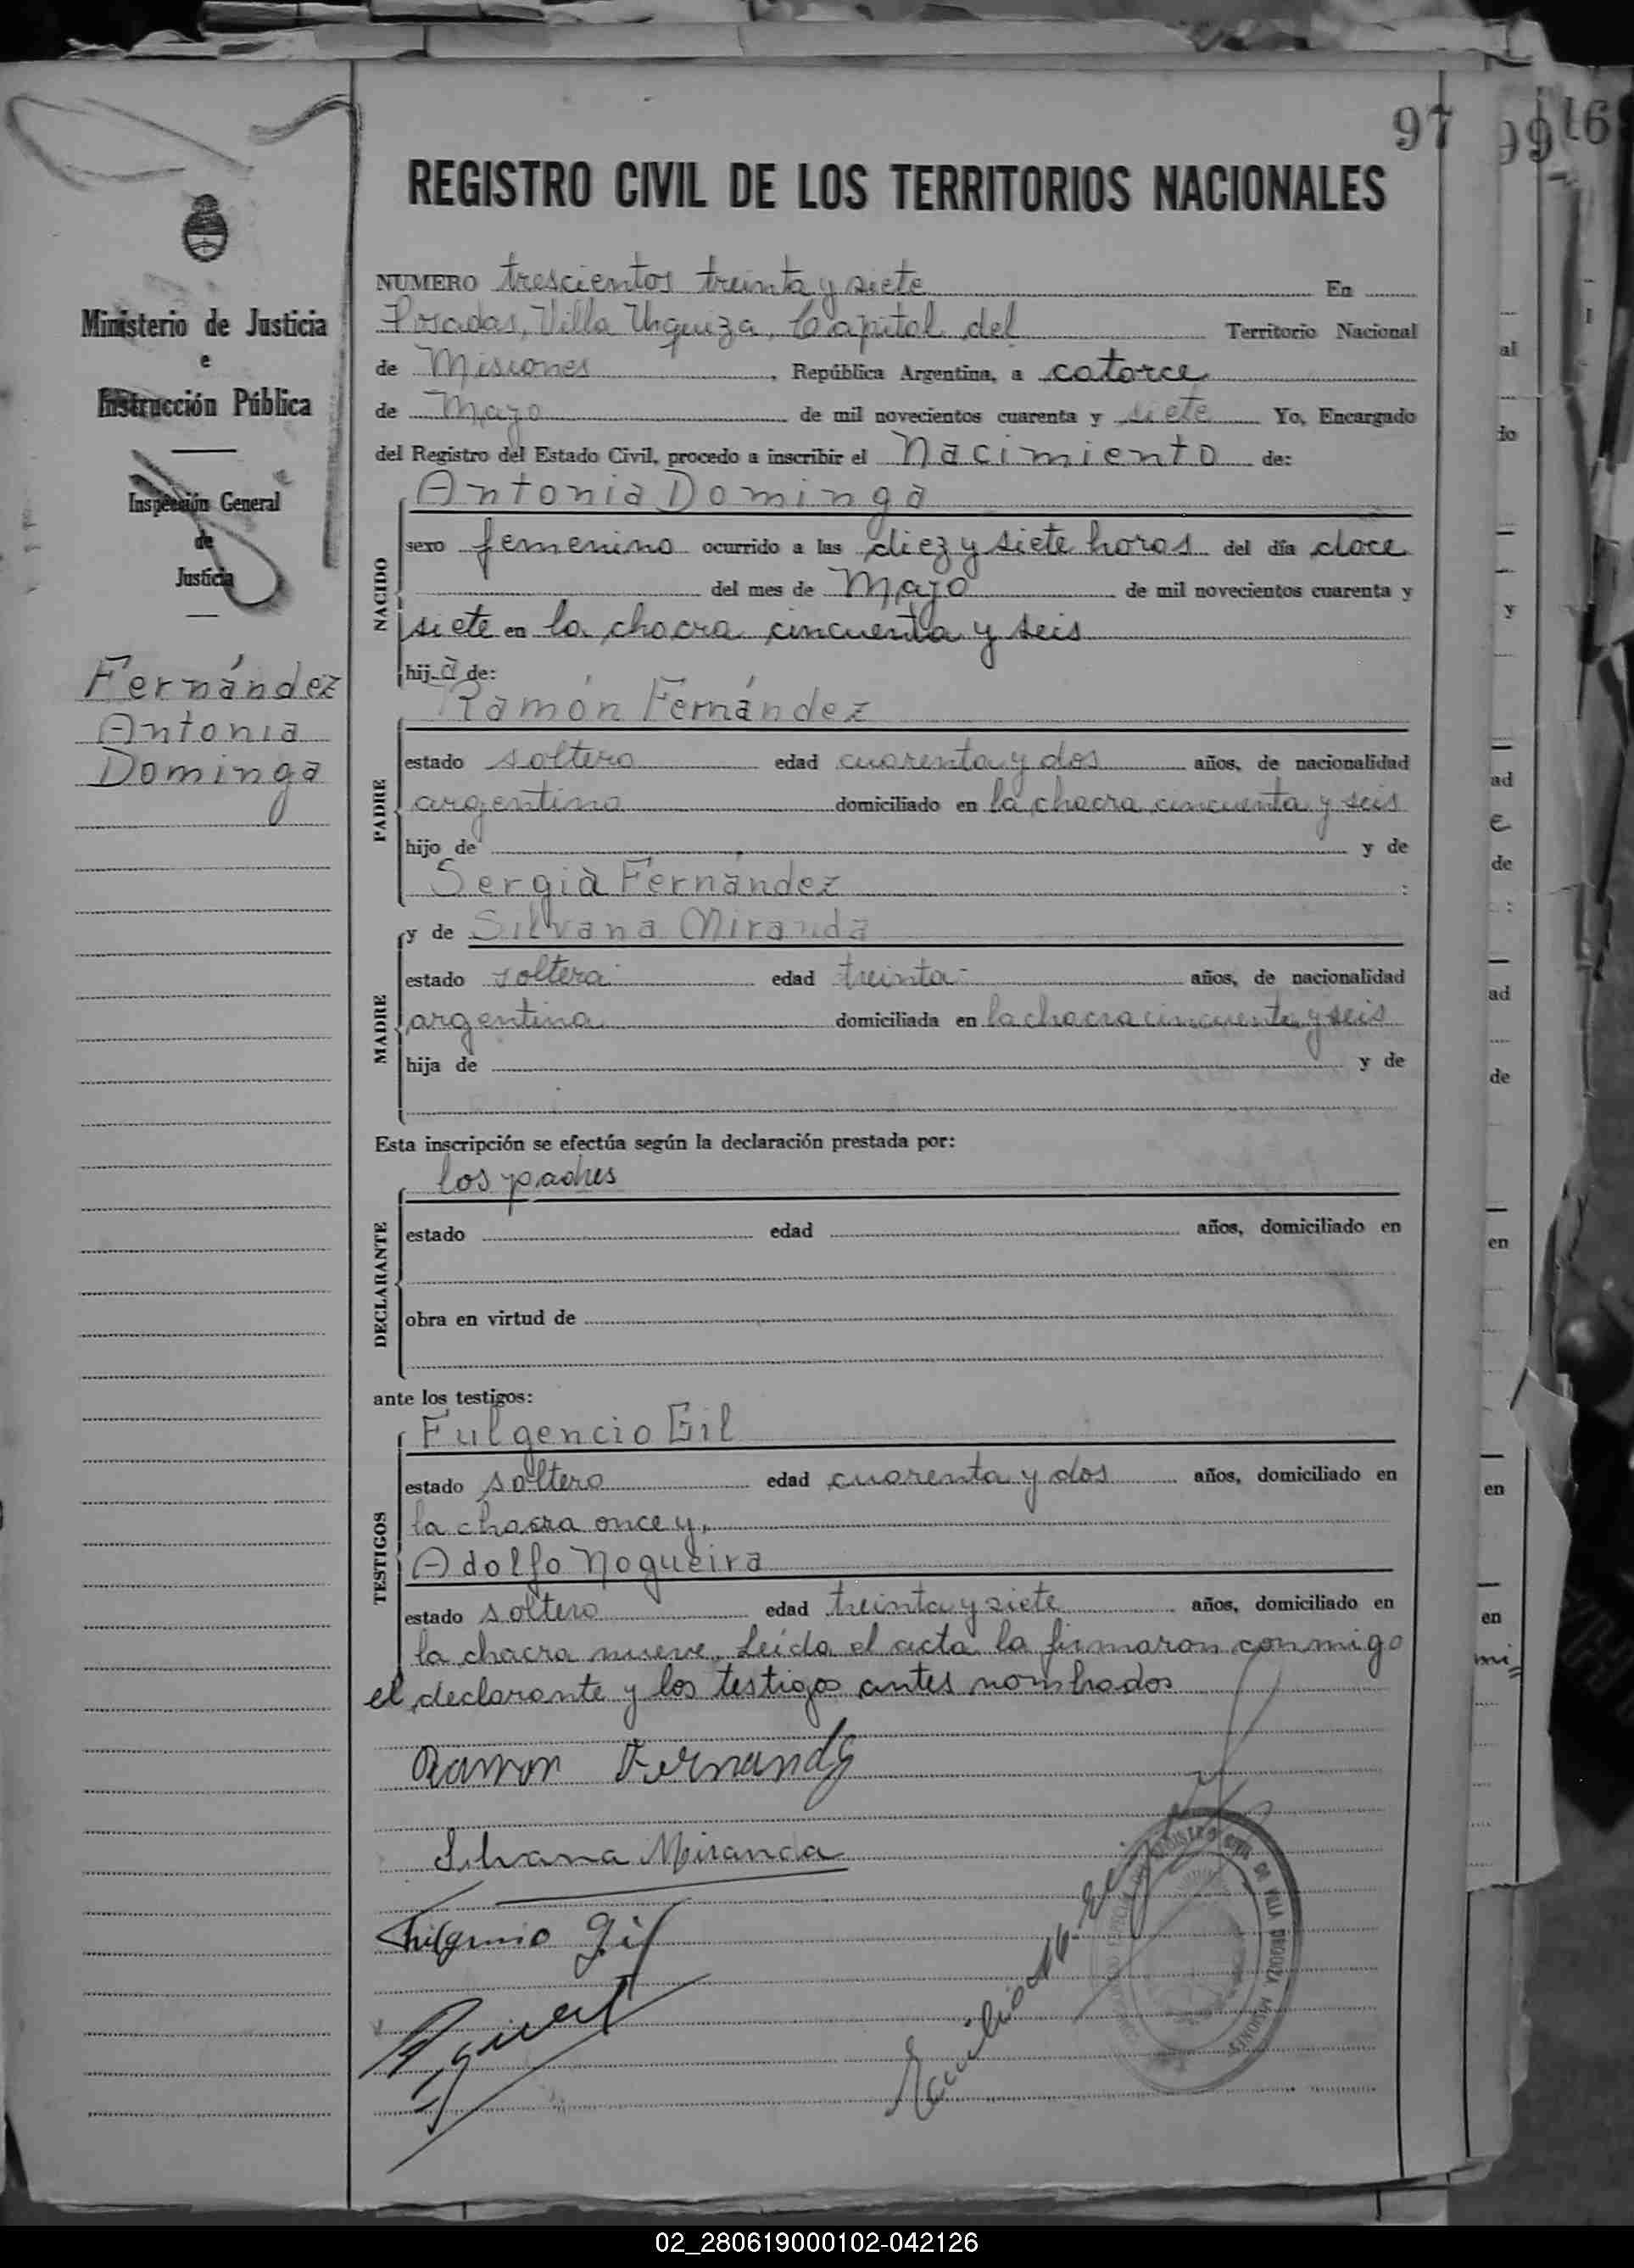 97
REGISTRO CIVIL DE LOS TERRITORIOS NACIONALES
Ministerio de Justicia
e
Instrucción Pública
Inspección General
de
Justicia
Fernández
Antonia
Dominga
NUMERO trescientos treinta y siete En
Posadas, Villa Urquiza, Capital del Territorio Nacional
de Misiones, República Argentina, a catorce
de Mayo de mil novecientos cuarenta y siete Yo, Encargado
del Registro del Estado Civil, procedo a inscribir el Nacimiento de:
NACIDO
Antonia Dominga
sexo femenino ocurrido a las diez y siete horas del día doce
del mes de Mayo de mil novecientos cuarenta y
siete en la chacra cincuenta y seis
hija de:
PADRE
Ramón Fernández
estado soltero edad cuarenta y dos años, de nacionalidad
argentino domiciliado en la chacra cincuenta y seis
hijo de y de
Sergia Fernández :
MADRE
y de Silvana Miranda
estado soltera edad treinta años, de nacionalidad
argentina domiciliada en la chacra cincuenta y seis
hija de y de
Esta inscripción se efectúa según la declaración prestada por:
DECLARANTE
los padres
estado edad años, domiciliado en
obra en virtud de
ante los testigos:
TESTIGOS
Fulgencio Gil
estado soltero edad cuarenta y dos años, domiciliado en
la chacra once y,
Adolfo Nogueira
estado soltero edad treinta y siete años, domiciliado en
la chacra nueve. Leída el acta la firmaron conmigo
el declarante y los testigos antes nombrados
Ramon Fernandez
Silvana Miranda
Fulgencio Gil
REGISTRO CIVIL DE VILLA URQUIZA MISIONES
02_280619000102-042126